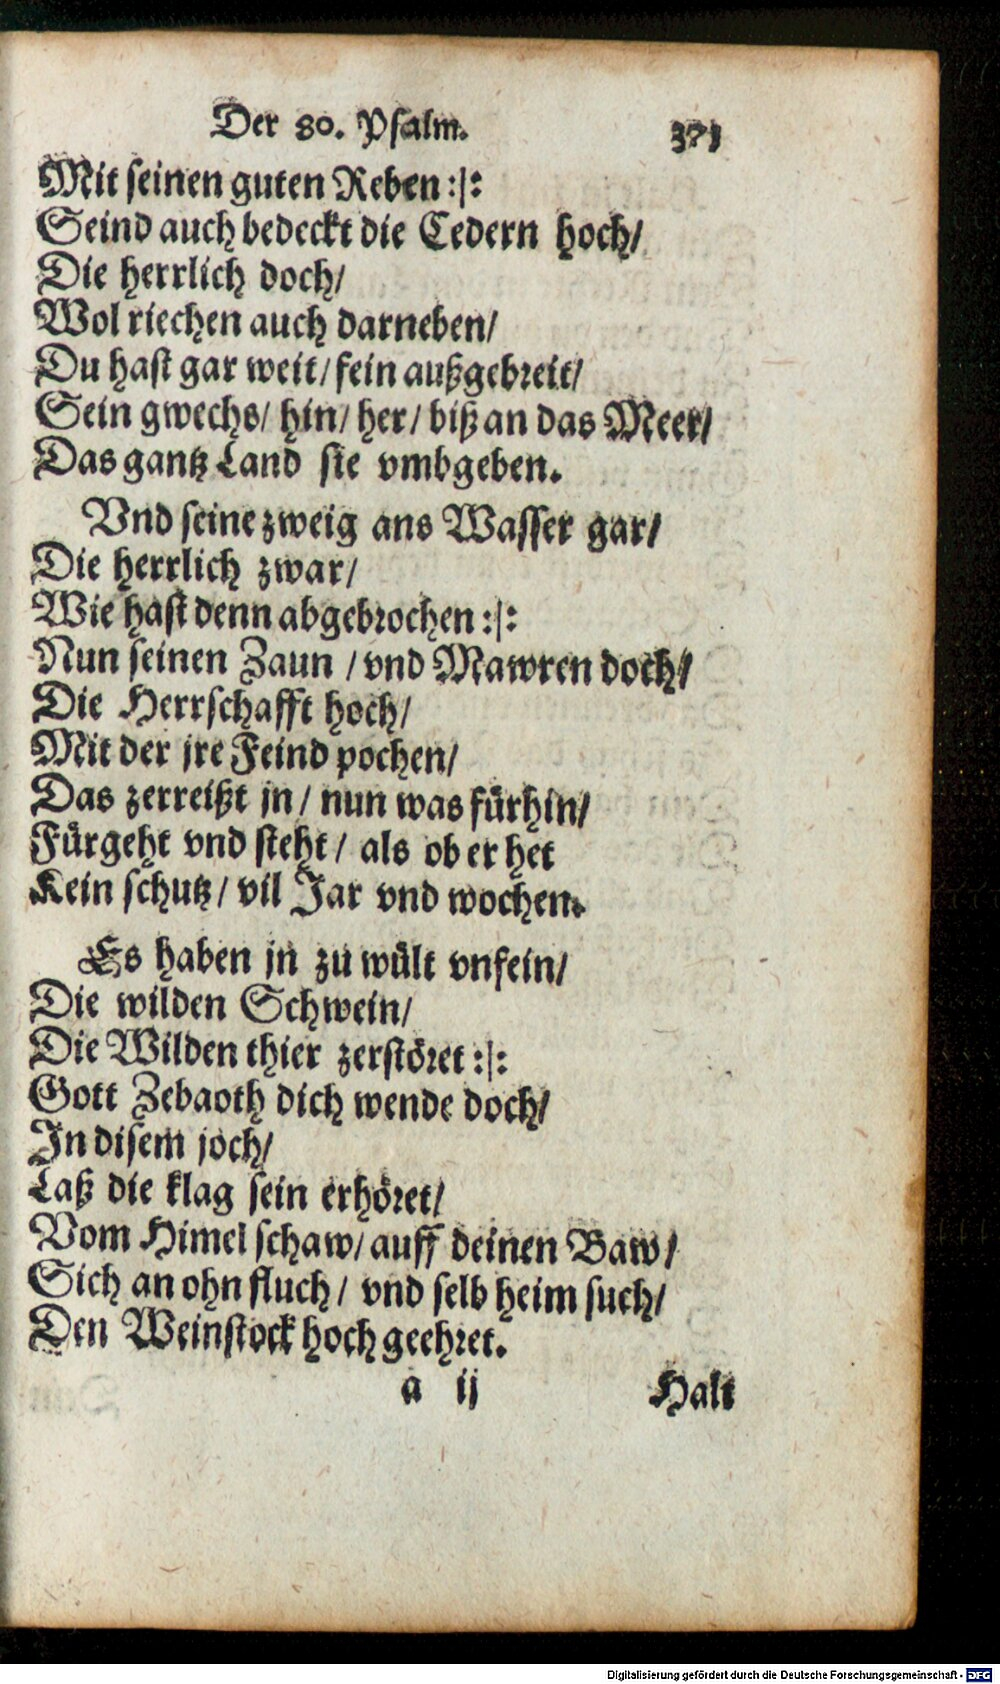 Der 80. Psalm. 371
Mit seinen guten Reben :|:
Seind auch bedeckt die Cedern hoch/
Die herrlich doch/
Wol riechen auch darneben/
Du hast gar weit/ fein außgebreit/
Sein gwechs/ hin/ her/ biß an das Meer/
Das gantz Land sie vmbgeben.
Vnd seine zweig ans Wasser gar/
Die herrlich zwar/
Wie hast denn abgebrochen :|:
Nun seinen Zaun / vnd Mawren doch/
Die Herrschafft hoch/
Mit der jre Feind pochen/
Das zerreißt jn / nun was fürhin/
Fürgeht vnd steht / als ob er het
Kein schutz / vil Jar vnd wochen.
Es haben jn zu wült vnfein/
Die wilden Schwein/
Die Wilden thier zerstöret :|:
Gott Zebaoth dich wende doch/
In disem joch/
Laß die klag sein erhöret/
Vom Himel schaw/ auff deinen Baw/
Sich an ohn fluch / vnd selb heim such/
Den Weinstock hoch geehret.
a ij Halt
Digitalisierung gefördert durch die Deutsche Forschungsgemeinschaft - DFG